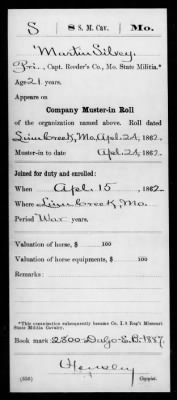 S 8 S. M. Cav. Mo.
Martin Silvey
Pri., Capt. Reeder's Co., Mo. State Militia.*
Age 21 years.
Appears on
Company Muster-in Roll
of the organization named above. Roll dated
Linn Creek, Mo. Apl. 24, 1862.
Muster-in to date Apl. 24, 1862.
Joined for duty and enrolled:
When Apl. 15, 1862
Where Linn Creek, Mo.
Period War years.
Valuation of horse, $ 100
Valuation of horse equipments, $ 100
Remarks:
*This organization subsequently became Co. I, 8 Reg't Missouri
State Militia Cavalry.
Book mark: 2800-Dafo-E.B.-1887.
(356) Copyist.